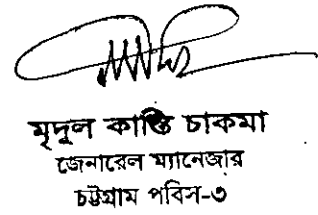 মৃদুল কান্তি চাকমা
জেনারেল ম্যানেজার
চট্টগ্রাম পবিস-৩